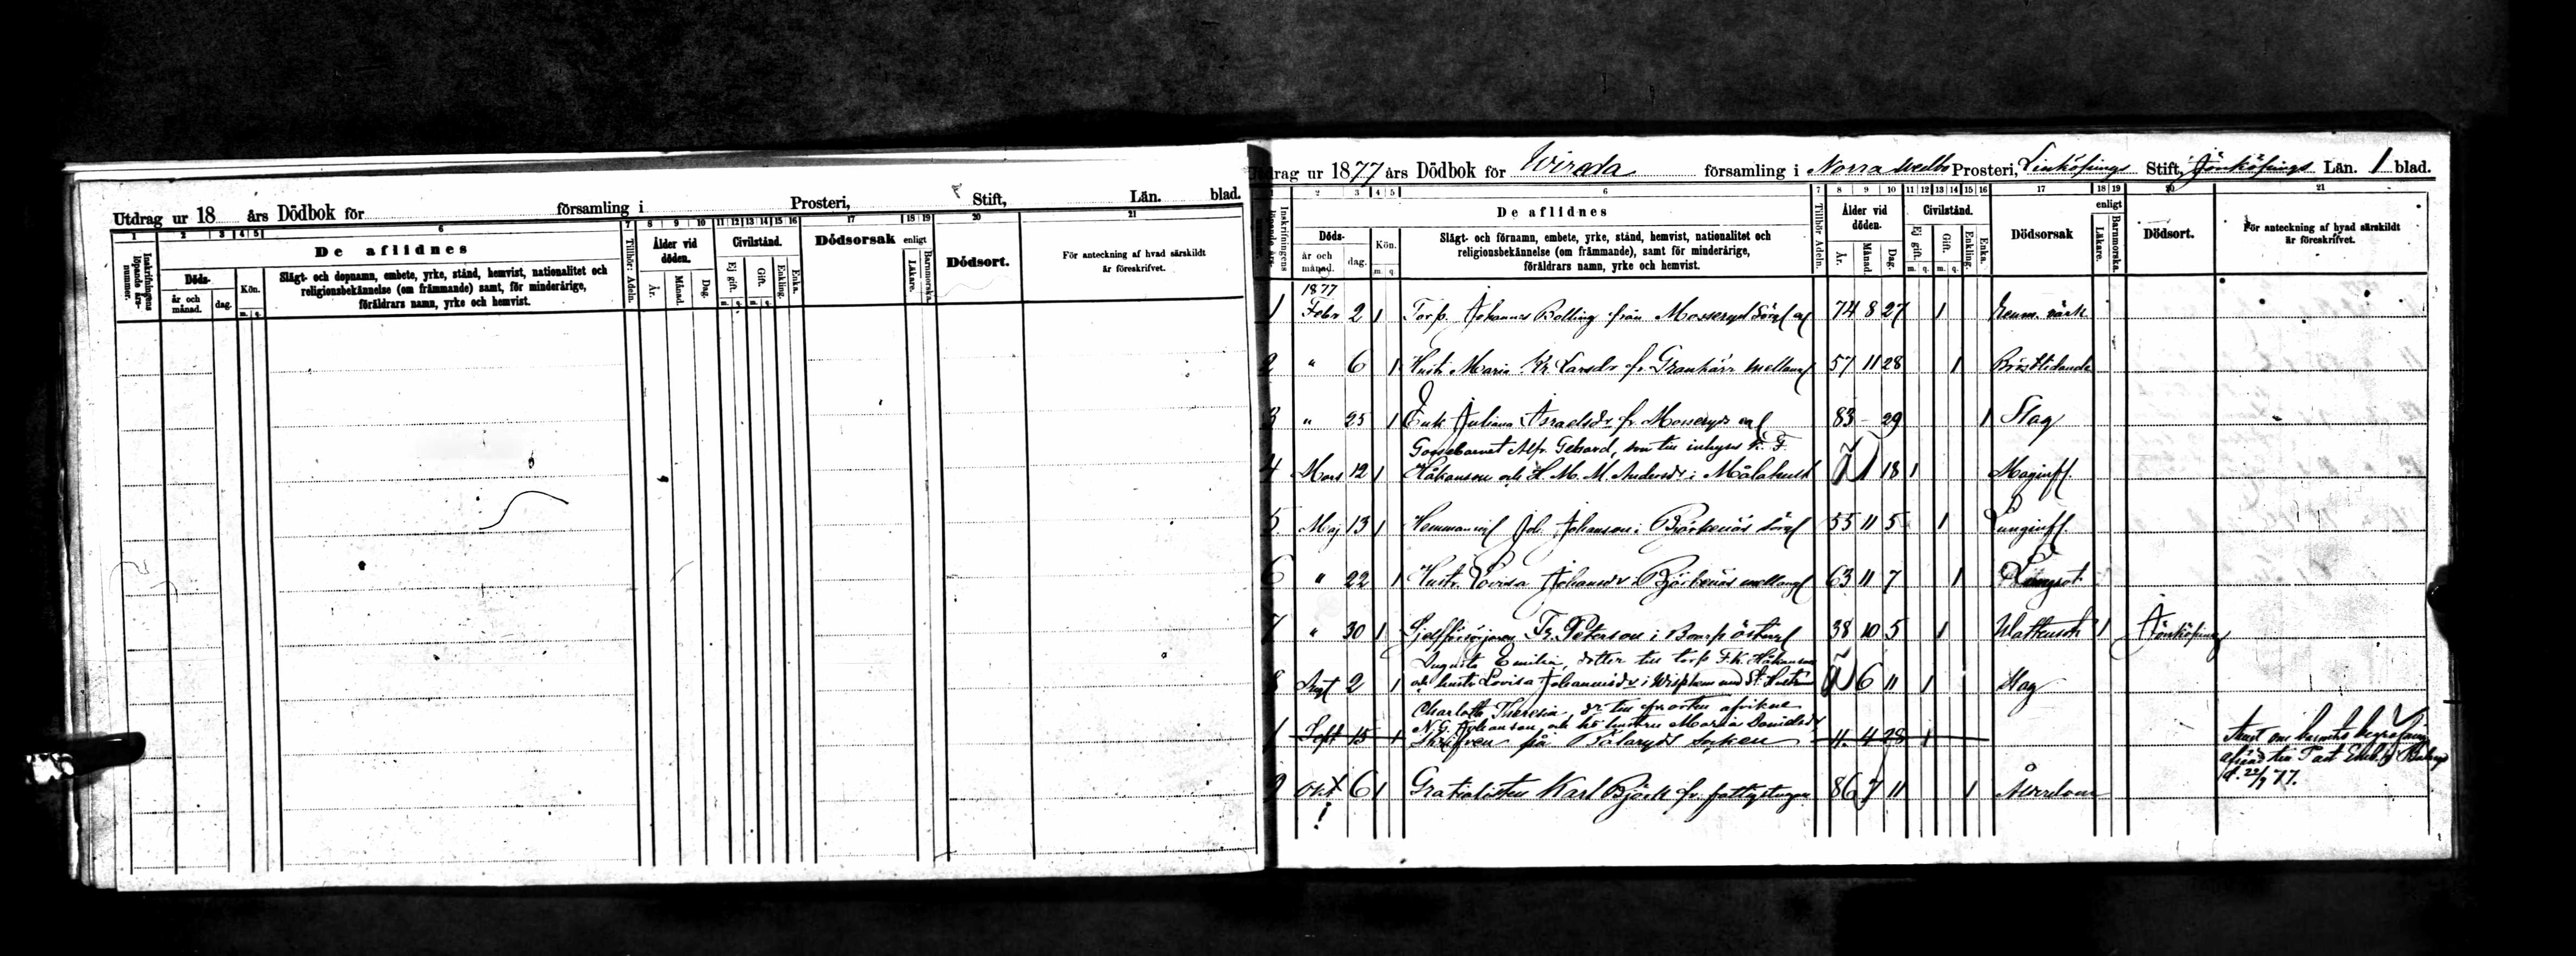 Utdrag ur 18 års Dödbok för församling i Prosteri, Stift, Län. blad.
1 2 3 4 5 6 7 8 9 10 11 12 13 14 15 16 17 18 19 20 21
Inskrifningens löpande års-nummer.
Döds-
år och månad.
dag.
Kön.
m. q.
De aflidnes
Slägt- och dopnamn, embete, yrke, stånd, hemvist, nationalitet och
religionsbekännelse (om främmande) samt, för minderårige,
föräldrars namn, yrke och hemvist.
Tillhör: Adeln.
Ålder vid döden.
År. Månad. Dag.
Civilstånd.
Ej gift. Gift. Enkling. Enka.
m. q. m. q.
Dödsorsak
enligt
Läkare. Barnmorska.
Dödsort.
För anteckning af hvad särskildt
är föreskrifvet.
Utdrag ur 1877 års Dödbok för Wireda församling i Norra Wedbo Prosteri, Linköpings Stift, Jönköpings Län. 1 blad.
2 3 4 5 6 7 8 9 10 11 12 13 14 15 16 17 18 19 20 21
Inskrifningens
Döds-
år och månad.
dag.
Kön.
m. q.
De aflidnes
Slägt- och förnamn, embete, yrke, stånd, hemvist, nationalitet och
religionsbekännelse (om främmande), samt för minderårige,
föräldrars namn, yrke och hemvist.
Tillhör Adeln.
Ålder vid döden.
År. Månad. Dag.
Civilstånd.
Ej gift. Gift. Enkling. Enka.
m. q. m. q.
Dödsorsak
enligt
Läkare. Barnmorska.
Dödsort.
För anteckning af hvad särskildt
är föreskrifvet.
1877
1 Febr 2 1 Torp. Johannes Bolling från Mosseryd 74 8 27 1 Reum. värk
2 " 6 1 Hustr Maria Kr Larsdr fr. Grankärr 57 11 28 1 Bröstlidande
3 " 25 1 Enk Juliana Israelsdr fr. Mosseryds 83 - 29 1 Slag
Gossebarnet Alfr. Gehard, son till inhyses K. F.
4 Mars 12 1 Håkanson och H. M. M. Andersdr i 1 18 1 Maginfl
5 Maj 13 1 Joh. Johanson i Björkenäs 55 11 5 1 Lunginfl
6 " 22 1 Hustr. Lovisa Johansdr i Björkenäs 63 11 7 1 Lungsot
7 " 30 1 Sjelfförsörjaren Fr. Peterson i 38 10 5 1 Wattusot 1 Jönköping
Augusta Emilia, dotter till torp F. K. Håkanson
8 Augt 2 1 och hustr Lovisa Johannisdr i 6 11 1 Slag
Charlotta Theresia, dr till fr. orten afvikne
N. G. Johanson och hs hustru Maria Danielsdr
1 Sept 15 1 på Bälaryds socken 11 4 28 1
9 Okt 6 1 Gratialisten Karl Björk fr. fattigstugan 86 7 11 1 Ålderdom
Attest om barnets begrafning
afsänd till Past Emb. i Bälaryd
d. 22/9 77.